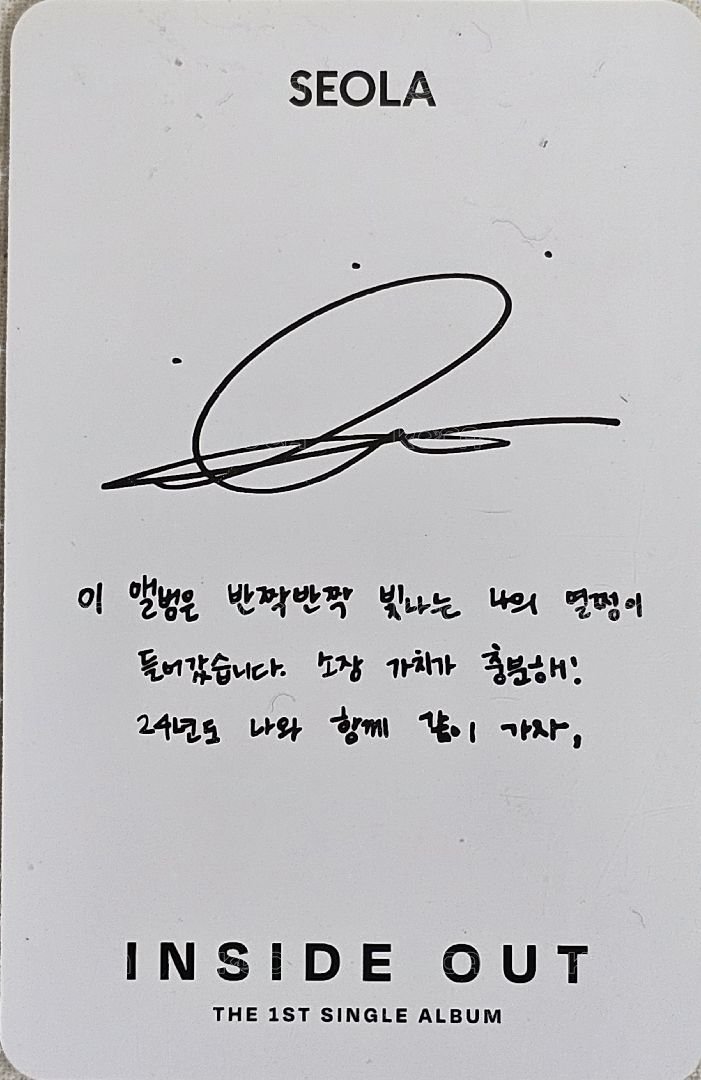 SEOLA
이 앨범은 반짝반짝 빛나는 나의 열쩡이
들어갔습니다. 소장 가치가 충분해!
24년도 나와 함께 같이 가자,
INSIDE OUT
THE 1ST SINGLE ALBUM